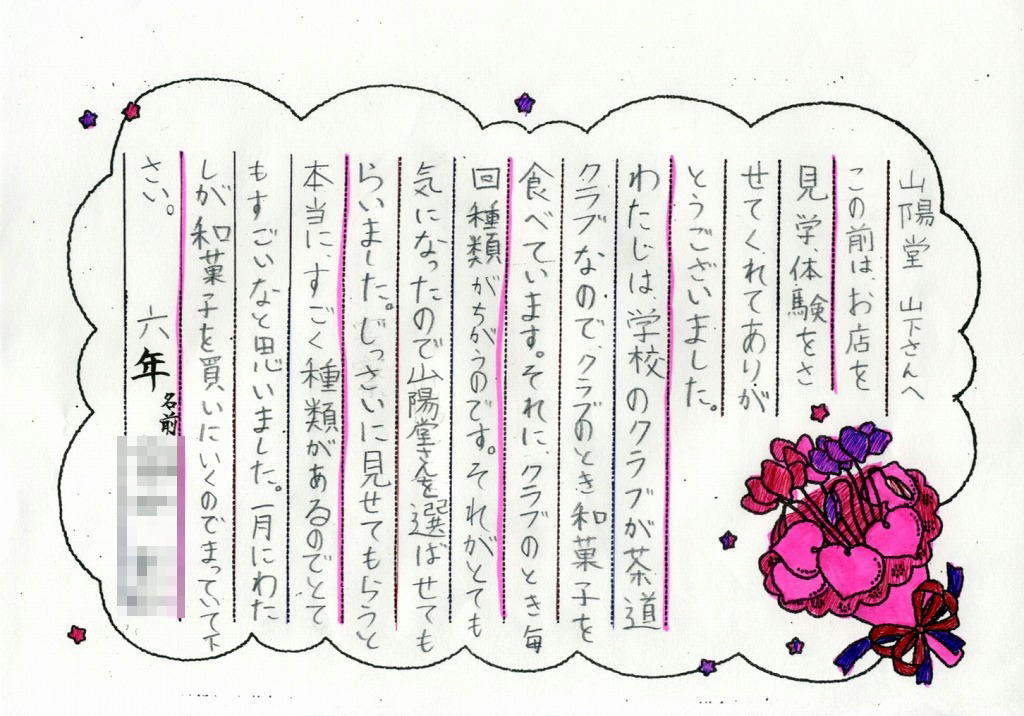 山陽堂 山下さんへ
この前は、お店を
見学、体験をさ
せてくれてありが
とうございました。
わたしは、学校のクラブが茶道
クラブなので、クラブのとき和菓子を
食べています。それに、クラブのとき毎
回種類がちがうのです。それがとても
気になったので山陽堂さんを選ばせても
らいました。じっさいに見せてもらうと
本当に、すごく種類があるのでとて
もすごいなと思いました。一月にわた
しが和菓子を買いにいくのでまっていて下
さい。
六年 名前